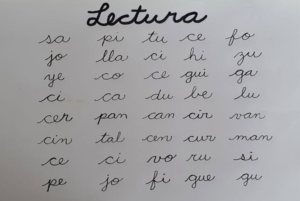 Lectura
sa pi tu ce fo
jo lla ci hi zu
ye co ce gui ga
ci ca du be lu
cer pan can cir van
cin tal cen cur man
ce ci vo ru si
pe jo fi gue gu